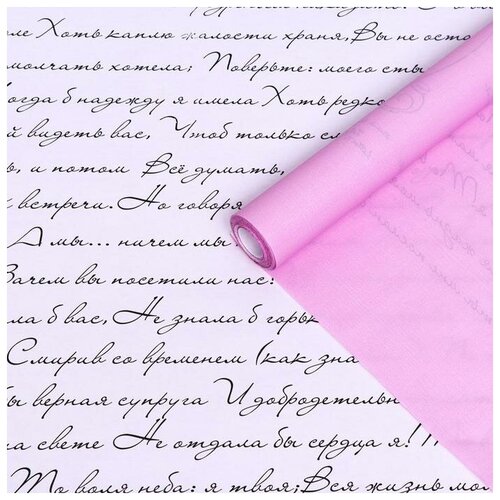 ле Хоть каплю жалости храня, Вы не оста
молчать хотела; Поверьте: моего сты
огда б надежду я имела Хоть редко
й видеть вас, Чтоб только сл
ь, и потом Всё думать,
встречи. Но говоря
А мы... ничем мы
Зачем вы посетили нас:
ла б вас, Не знала б горьк
Смирив со временем (как зна
ы верная супруга И добродетельн
на свете Не отдала бы сердца я!
То воля неба: я твоя; Вся жизнь мо